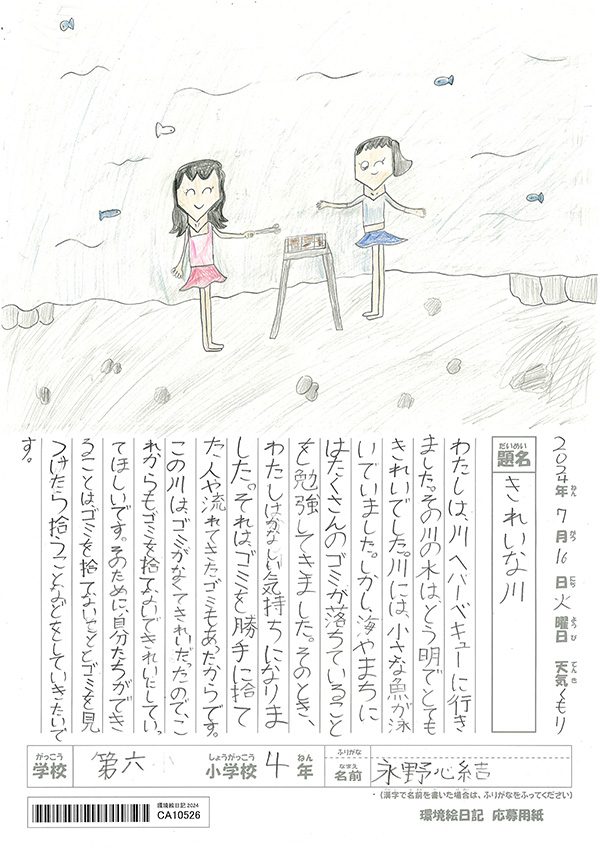 2024年ねん 7月がつ 16日にち 火曜日ようび 天気てんき くもり
題名だいめい きれいな川
わたしは、川へバーベキューに行き
ました。その川の水は、とう明でとても
きれいでした。川には、小さな魚が泳
いでいました。しかし、海やまちに
はたくさんのゴミが落ちていること
を勉強してきました。そのとき、
わたしはかなしい気持ちになりま
した。それは、ゴミを勝手に捨て
た人や流れてきたゴミもあったからです。
この川は、ゴミがなくてきれいだったので、こ
れからもゴミを捨てないできれいにしてい
てほしいです。そのために、自分たちができ
ることはゴミを捨てないこととゴミを見
つけたら拾うことなどをしていきたいで
す。
学校がっこう 第六 小学校しょうがっこう 4年ねん 名前なまえ ふりがな 永野心結
・(漢字で名前を書いた場合は、ふりがなをふってください)
環境絵日記 2024
CA10526
環境絵日記 応募用紙